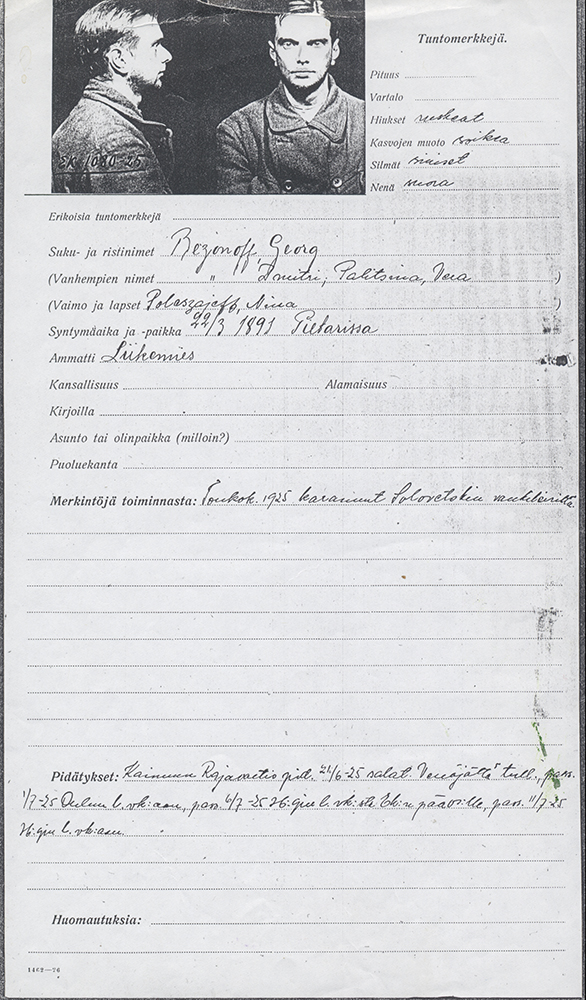 EK 1080-25
Tuntomerkkejä.
Pituus
Vartalo
Hiukset ruskeat
Kasvojen muoto soikea
Silmät siniset
Nenä suora
Erikoisia tuntomerkkejä
Suku- ja ristinimet Bezonoff, Georg
(Vanhempien nimet " Dmitri, Palitsina, Vera )
(Vaimo ja lapset Nina )
Syntymäaika ja -paikka 22/3 1891 Pietarissa
Ammatti Liikemies
Kansallisuus Alamaisuus
Kirjoilla
Asunto tai olinpaikka (milloin?)
Puoluekanta
Merkintöjä toiminnasta: Toukok. 1925 karannut Solovetskin vankileiriltä
Pidätykset: Kainuun Rajavartio pid. 21/6-25 salat. Venäjältä tull., pass.
1/7-25 Oulun l. vk:aan, pass. 6/7-25 H:gin l. vk:sta Ek:n pääosille, pass. 11/7-25
H:gin l. vk:aan.
Huomautuksia:
1462—26